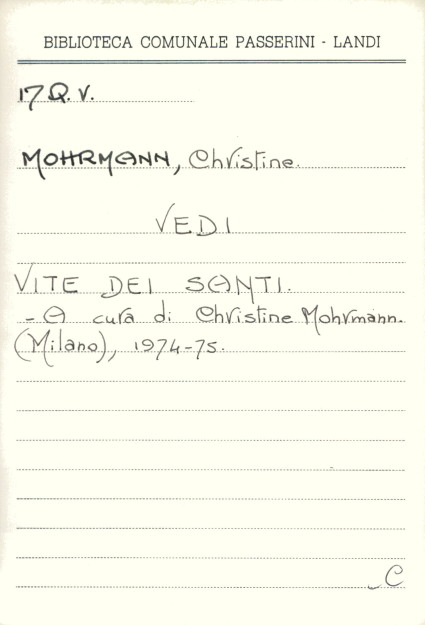 BIBLIOTECA COMUNALE PASSERINI - LANDI
17 Q. V.
MOHRMANN, Christine.
VEDI
VITE DEI SANTI.
- A cura di Christine Mohrmann.
(Milano), 1974-75.
C